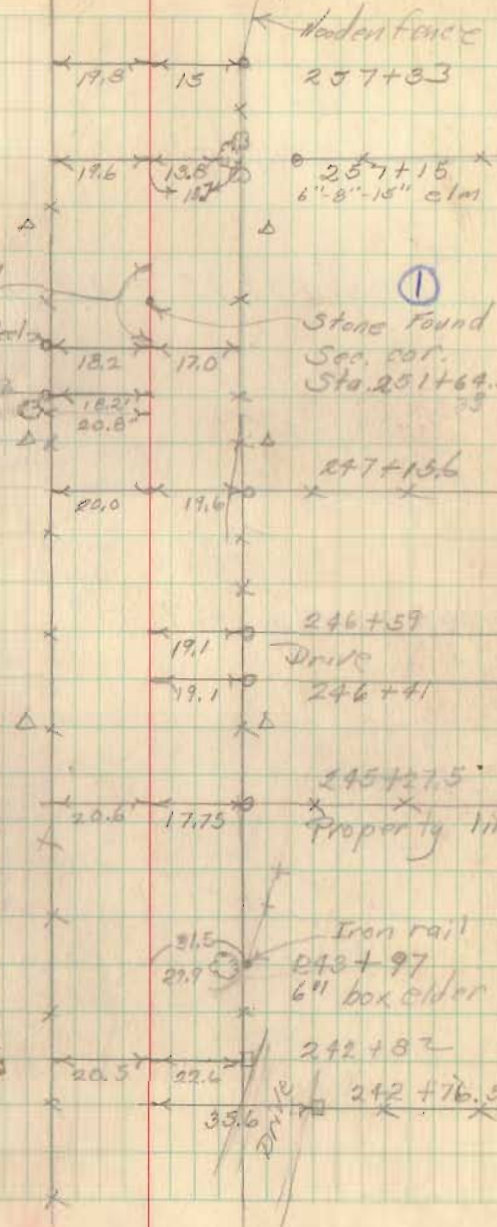 Wooden fence
19.8 15 257+33
19.6 13.8 257+15
6"-8"-15" elm
1
Stone Found
18.2 17.0 Sec. cor.
Sta. 251+64.
18.2
20.8
247+15.6
20.0 19.6
246+59
19.1
Drive
19.1 246+41
245+27.5
20.6 17.75
Property
Iron rail
31.5
243+97
29.9
6" box elder
242+82
20.5 22.6
242+76.5
35.6
Drive